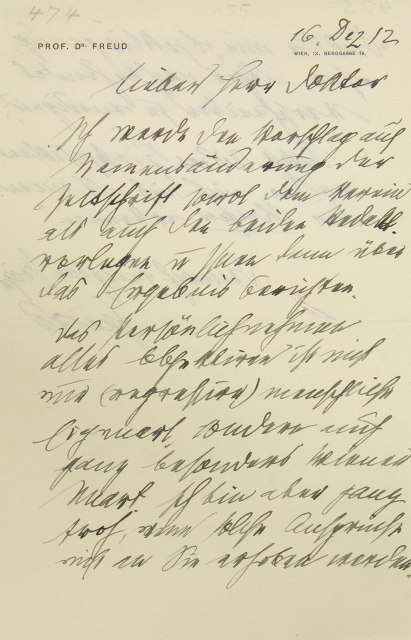 474
PROF. Dr. FREUD
16. Dez 12
WIEN, IX. BERGGASSE 19.
Lieber Herr Doktor
Ich werde den Vorschlag auf
Namensänderung der
Zeitschrift sowol dem Verein
als auch den beiden Redakt.
vorlegen u Ihnen dann über
das Ergebnis berichten.
Das Persönlichnehmen
alles Objektiven ist nicht
nur (regressive) menschliche
Eigenart, sondern auch
ganz besonders Wiener
Unart. Ich bin aber ganz
froh, wenn solche Ansprüche
nicht an Sie erhoben werden.